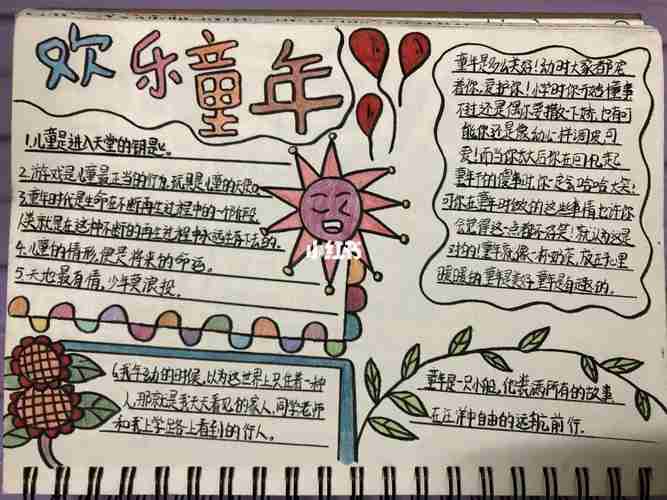 欢乐童年
1.儿童是进入天堂的钥匙。
2.游戏是儿童最正当的行为,玩具是儿童的天使。
3.童年时代是生命在不断再生过程中的一个阶段,
人类就是在这种不断的再生过程中永远生存下去的。
4.儿童的情形,便是将来的命运。
5.天地最有情,少年莫浪投。
6.我年幼的时候,以为这世界上只住着一种
人,那就是我天天看见的家人,同学老师
和我上学路上看到的行人。
童年是多么美好!幼时大家都宠
着你,爱护你!小学时你开始懂事
不过还是偶尔要撒一下娇,也有可
能你还是像幼儿一样调皮可
爱!而当你长大后你在回忆起
童年的傻事时你一定会哈哈大笑!
可你在童年时做的这些事情也许你
会觉得这一点都不好笑!就认为这是
对的!童年就像一杯奶茶,放在手里
暖暖的童年是美好,童年是有趣的。
童年是一只小船,化装满所有的故事
在海洋中自由的远航,前行.
小红书